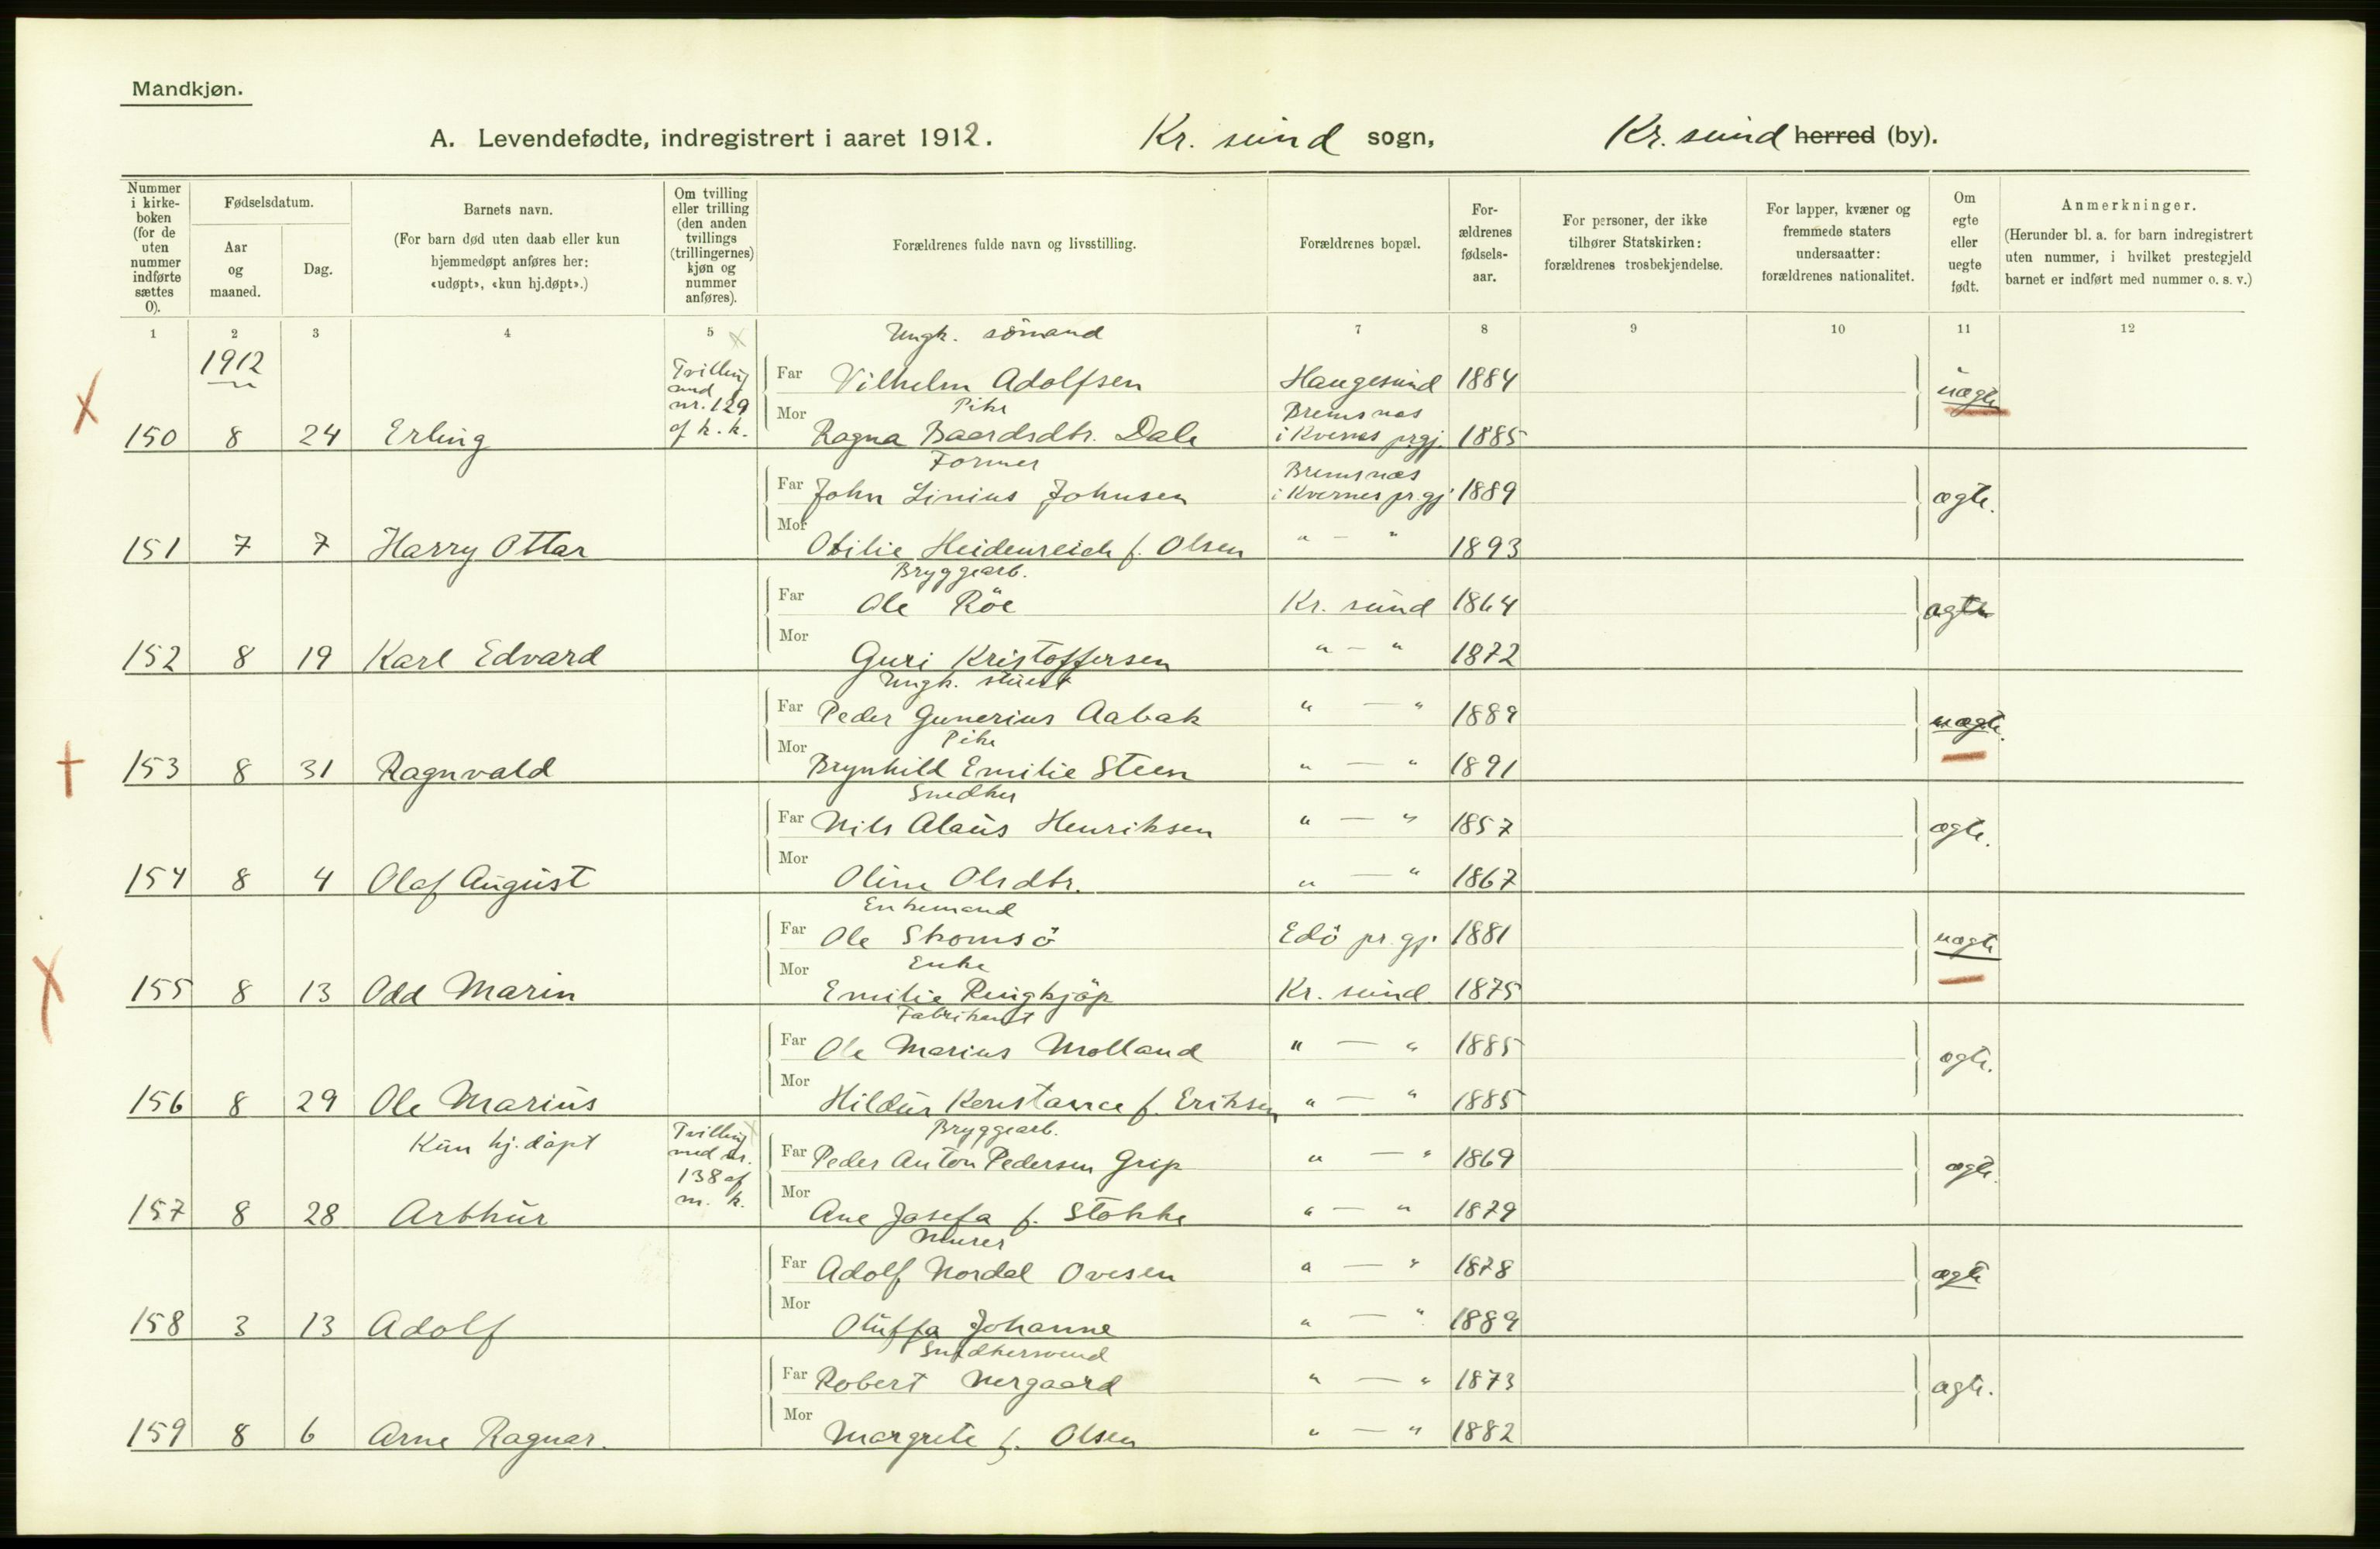 Mandkjøn.
A. Levendefødte, indregistrert i aaret 1912. Kr. sund sogn, Kr. sund herred (by).
Nummer i kirkeboken (for de uten nummer indførte sættes 0).
Fødselsdatum.
Aar og maaned.
Dag.
Barnets navn.
(For barn død uten daab eller kun hjemmedøpt anføres her: «udøpt», «kun hj.døpt».)
Om tvilling eller trilling (den anden tvillings (trillingernes) kjøn og nummer anføres).
Forældrenes fulde navn og livsstilling.
Forældrenes bopæl.
Forældrenes fødselsaar.
For personer, der ikke tilhører Statskirken: forældrenes trosbekjendelse.
For lapper, kvæner og fremmede staters undersaatter: forældrenes nationalitet.
Om egte eller uegte født.
Anmerkninger.
(Herunder bl. a. for barn indregistrert uten nummer, i hvilket prestegjeld barnet er indført med nummer o. s. v.)
1 2 3 4 5 7 8 9 10 11 12
1912
Ungk. sömand
Tvilling med nr. 129 af k. k.
Far Vilhelm Adolfsen Haugesund 1884 uægte
Pike
150 8 24 Erling Mor Ragna Baardsdtr. Dale Bremsnes i Kvernes prgj. 1885
Former
Far John Linius Johnsen Bremsnæs i Kvernes pr.gj. 1889 ægte.
151 7 7 Harry Ottar Mor Otilie Heidenreich f. Olsen " — " 1893
Bryggearb.
Far Ole Röe Kr. sund 1864 ægte
152 8 19 Karl Edvard Mor Guri Kristoffersen " — " 1872
Ungk. stuert
Far Peder Gunerius Aabak " — " 1889 uægte.
Pike
153 8 31 Ragnvald Mor Brynhild Emilie Steen " — " 1891
Snedker
Far Nils Alaus Henriksen " — " 1857 ægte.
154 8 4 Olaf August Mor Oline Olsdtr. " — " 1867
Enkemand
Far Ole Skomsö Edö pr.gj. 1881 uægte
Enke
155 8 13 Odd Marin Mor Emilie Ringkjöp Kr. sund 1875
Fabrikant
Far Ole Marius Molland " — " 1885 ægte.
156 8 29 Ole Marius Mor Hildur Konstance f. Eriksen " — " 1885
Kun hj. döpt
Tvilling med nr. 138 af m. k.
Bryggearb.
Far Peder Anton Pedersen Grip " — " 1869 ægte.
157 8 28 Arthur Mor Ane Josefa f. Stokke " — " 1879
Murer
Far Adolf Nordal Ovesen " — " 1878 ægte
158 3 13 Adolf Mor Oluffa Johanne " — " 1889
Snedkersvend
Far Robert Nergaard " — " 1873 ægte.
159 8 6 Arne Ragnar. Mor Margrete f. Olsen " — " 1882